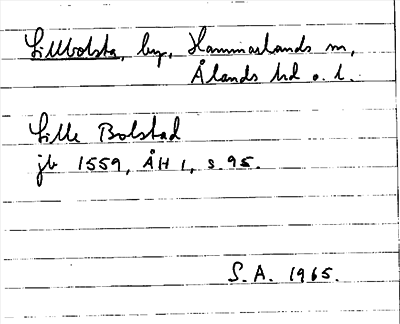 Lillbolsta, by, Hammarlands sn,
Ålands hd o. l.
Lille Bolstad
jb 1559, ÅH 1, s. 95.
S. A. 1965.